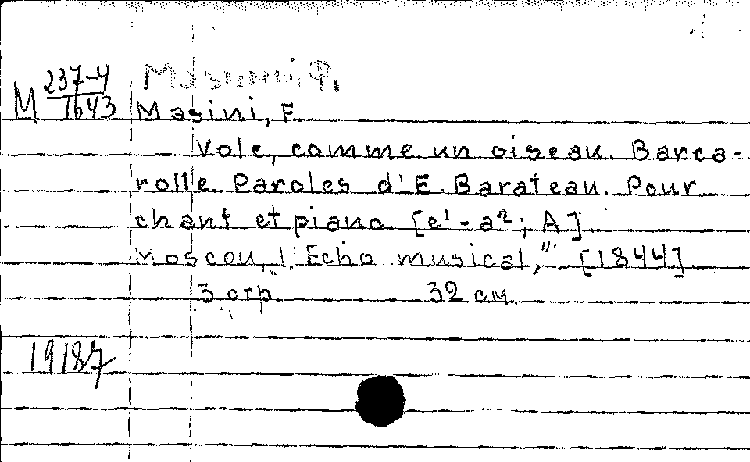 М 237-4/1643
Мазини, Ф.
Masini, F.
Vole, comme un oiseau. Barca-
rolle. Paroles d'E. Barateau. Pour
chant et piano [e¹-a²; A].
Moscou, "L'Echo musical," [1844]
3 стр. 32 см.
19187